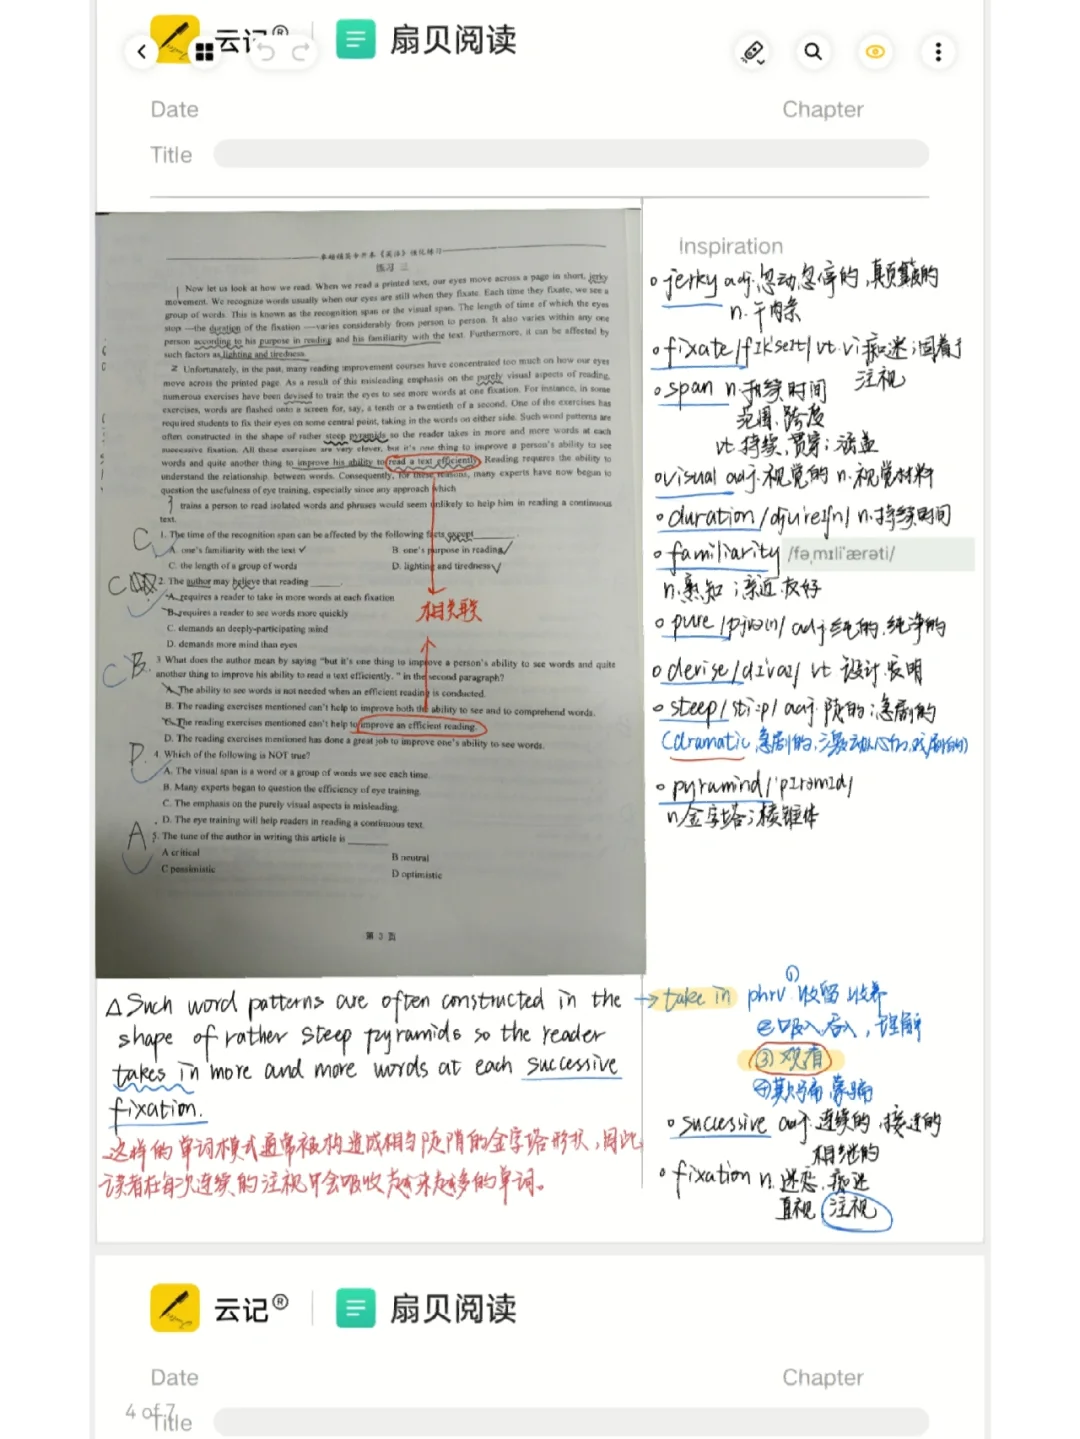 云记®
扇贝阅读
Date
Chapter
Title
练习 三
Now let us look at how we read. When we read a printed text, our eyes move across a page in short, jerky
movement. We recognize words usually when our eyes are still when they fixate. Each time they fixate, we see a
group of words. This is known as the recognition span or the visual span. The length of time of which the eyes
stop —the duration of the fixation —varies considerably from person to person. It also varies within any one
person according to his purpose in reading and his familiarity with the text. Furthermore, it can be affected by
such factors as lighting and tiredness.
2 Unfortunately, in the past, many reading improvement courses have concentrated too much on how our eyes
move across the printed page. As a result of this misleading emphasis on the purely visual aspects of reading,
numerous exercises have been devised to train the eyes to see more words at one fixation. For instance, in some
exercises, words are flashed onto a screen for, say, a tenth or a twentieth of a second. One of the exercises has
required students to fix their eyes on some central point, taking in the words on either side. Such word patterns are
often constructed in the shape of rather steep pyramids so the reader takes in more and more words at each
successive fixation. All these exercises are very clever, but it's one thing to improve a person's ability to see
words and quite another thing to improve his ability to read a text efficiently. Reading requires the ability to
understand the relationship between words. Consequently, for these reasons, many experts have now begun to
question the usefulness of eye training, especially since any approach which
trains a person to read isolated words and phrases would seem unlikely to help him in reading a continuous
text.
C 1. The time of the recognition span can be affected by the following facts except
A. one's familiarity with the text ✓ B. one's purpose in reading ✓
C. the length of a group of words D. lighting and tiredness ✓
C 2. The author may believe that reading
A. requires a reader to take in more words at each fixation
B. requires a reader to see words more quickly
相关联
C. demands an deeply-participating mind
D. demands more mind than eyes
C B. 3 What does the author mean by saying "but it's one thing to improve a person's ability to see words and quite
another thing to improve his ability to read a text efficiently. " in the second paragraph?
A. The ability to see words is not needed when an efficient reading is conducted.
B. The reading exercises mentioned can't help to improve both the ability to see and to comprehend words.
C. The reading exercises mentioned can't help to improve an efficient reading.
D. The reading exercises mentioned has done a great job to improve one's ability to see words.
D. 4. Which of the following is NOT true?
A. The visual span is a word or a group of words we see each time.
B. Many experts began to question the efficiency of eye training.
C. The emphasis on the purely visual aspects is misleading.
D. The eye training will help readers in reading a continuous text.
A 5. The tune of the author in writing this article is
A critical B neutral
C pessimistic D optimistic
第 3 页
Inspiration
jerky adj.忽动忽停的,颠簸的
n.干肉条
fixate/fɪkseɪt/vt.vi痴迷;固着于
注视
span n.持续时间
范围.跨度
vt.持续,贯穿;涵盖
visual adj.视觉的 n.视觉材料
duration/djʊreɪʃn/n.持续时间
familiarity /fəˌmɪliˈærəti/
n.熟知;亲近.友好
pure/pjʊən/adj纯的.纯净的
devise/dɪvaɪ/vt 设计.发明
steep/stiːp/adj.陡的;急剧的
(dramatic 急剧的,激动人心的,戏剧的)
pyramind/'pɪrəmɪd/
n.金字塔;棱锥体
△Such word patterns are often constructed in the
shape of rather steep pyramids so the reader
takes in more and more words at each successive
fixation.
这样的单词模式通常被构造成相当陡峭的金字塔形状,因此
读者在每次连续的注视中会吸收越来越多的单词。
→take in phrv.①收留 收养
②吸入 吞入,理解
③观看
④欺骗 蒙骗
successive adj.连续的.接连的
相继的
fixation n.迷恋.痴迷
直视.注视
云记®
扇贝阅读
Date
Chapter
4 of 7
Title